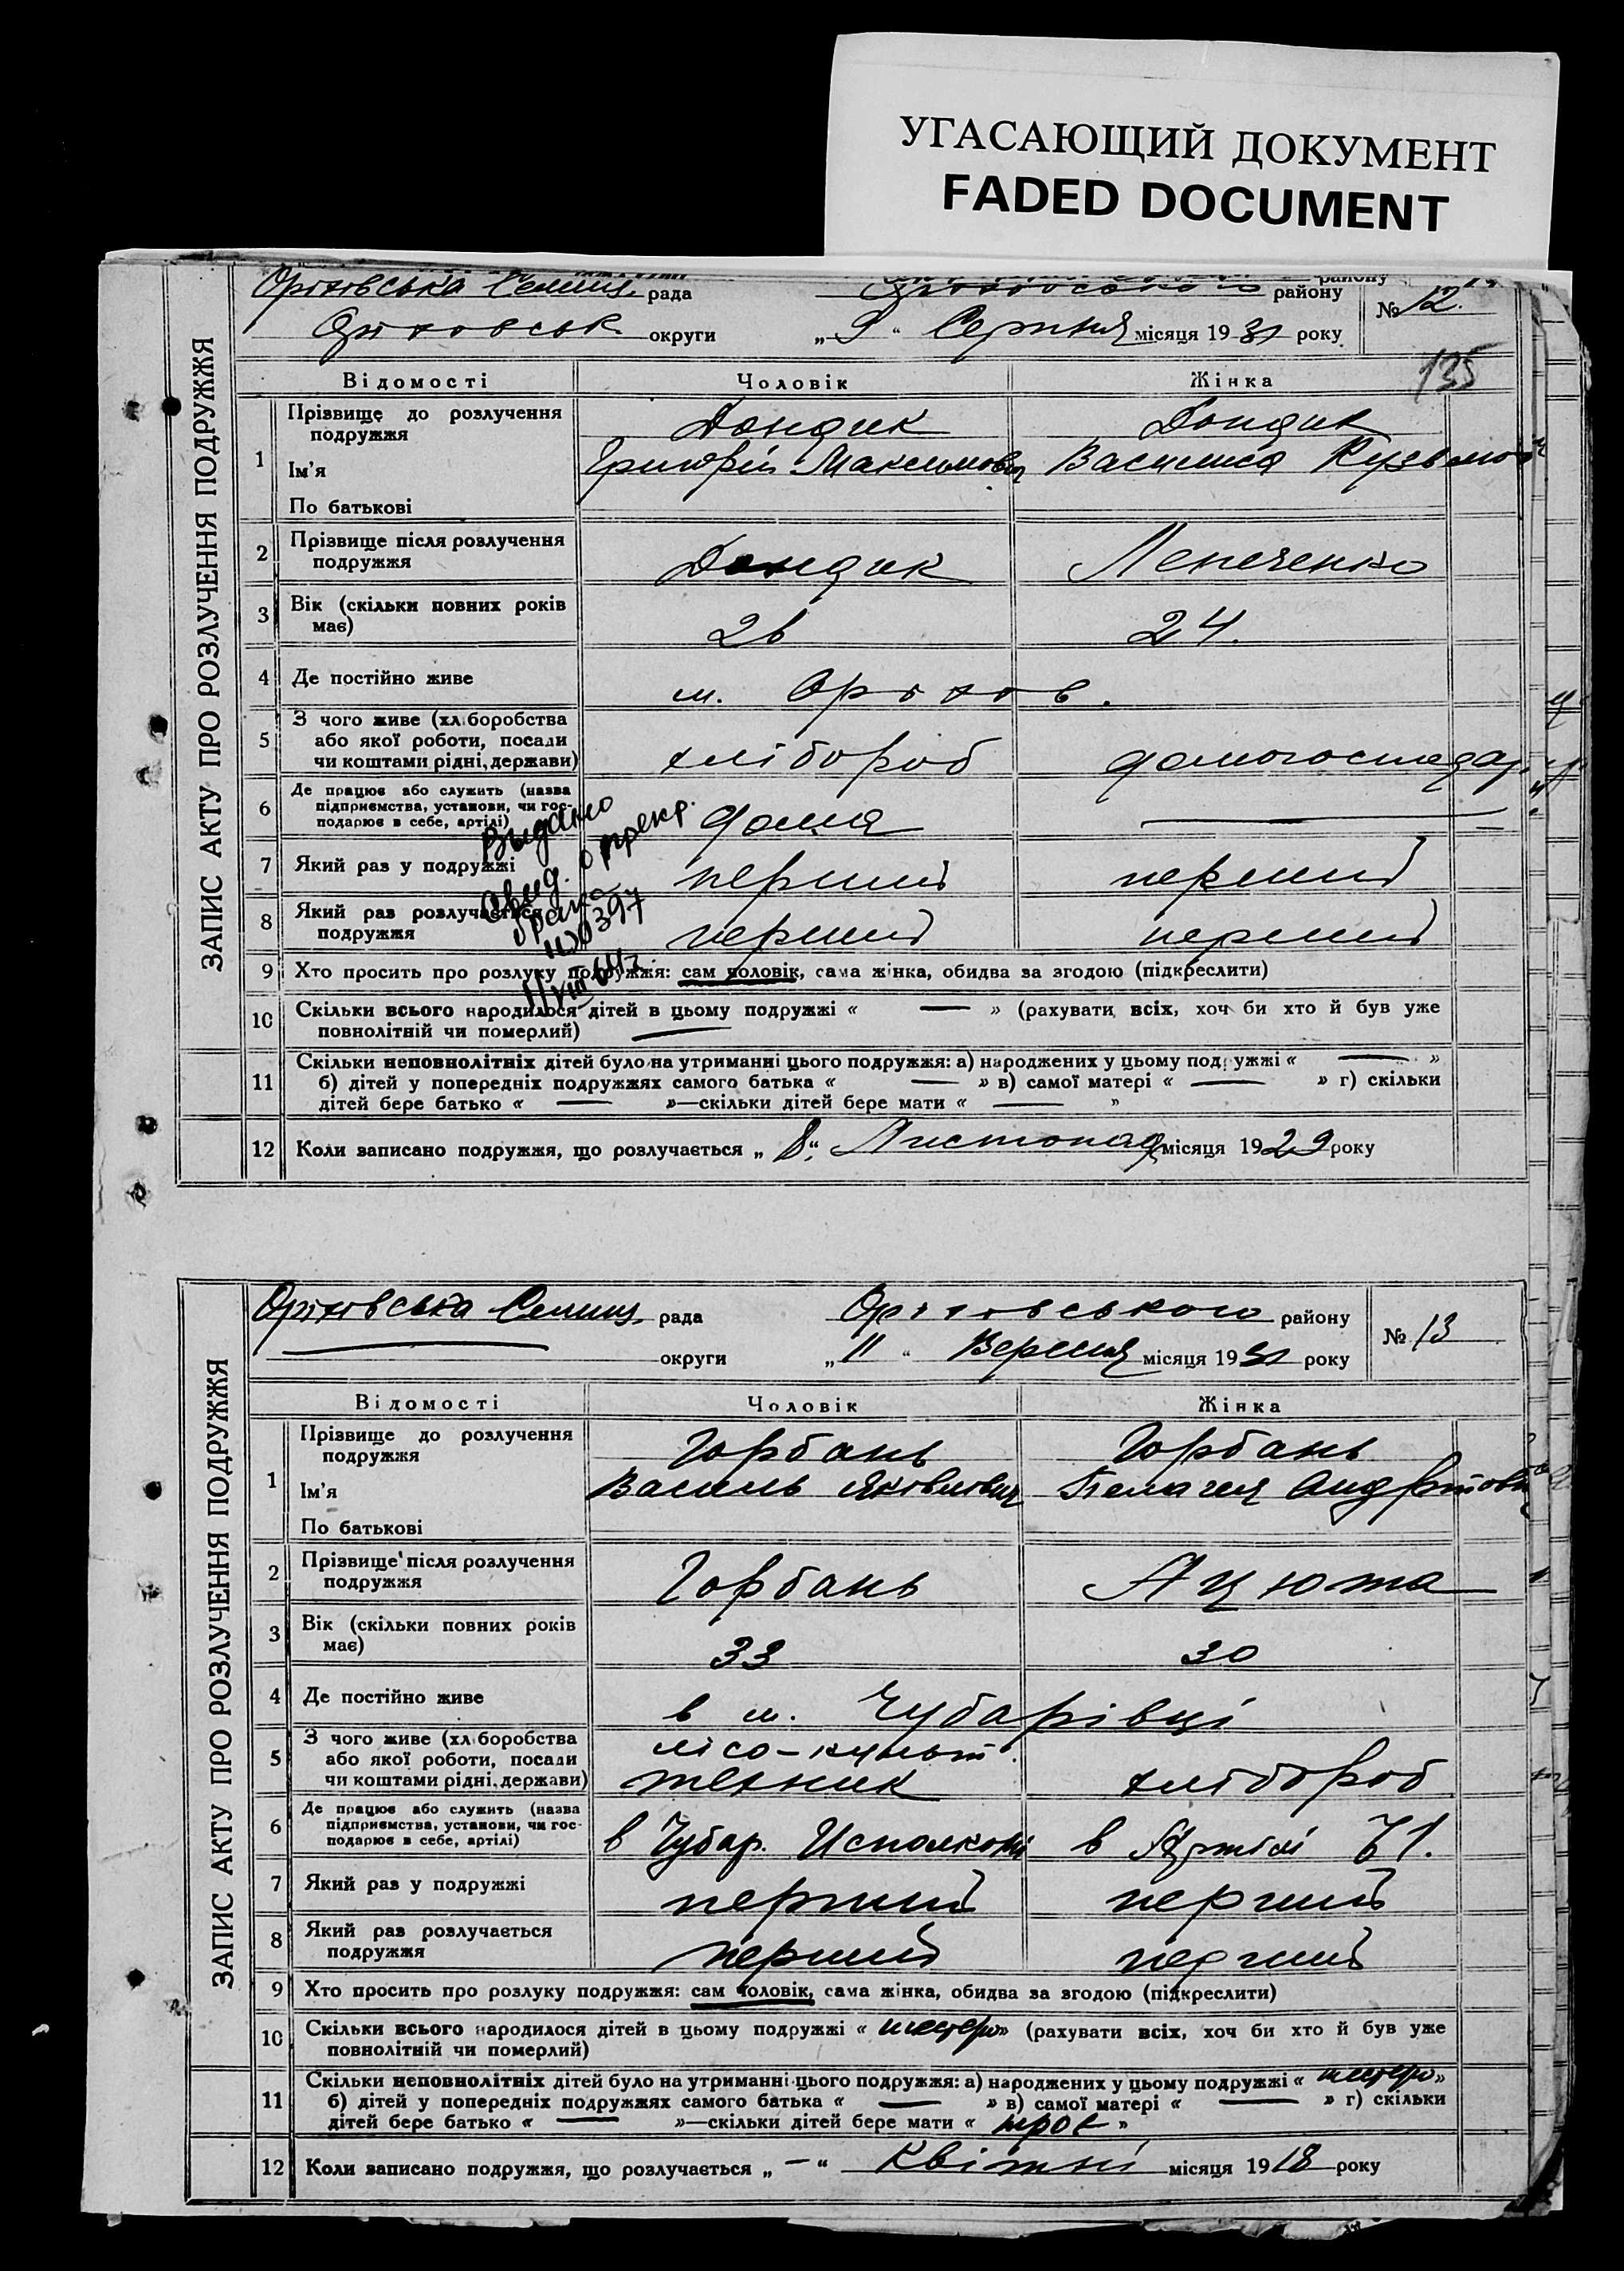 УГАСАЮЩИЙ ДОКУМЕНТ
FADED DOCUMENT
ЗАПИС АКТУ ПРО РОЗЛУЧЕННЯ ПОДРУЖЖЯ
Оріхівська Селищ. рада району № 12.
округи „9“ Серпня місяця 1931 року
135
Відомості Чоловік Жінка
1 Прізвище до розлучення подружжя Дондик Дондик
Ім'я Григорій Максимович Василиса
По батькові
2 Прізвище після розлучення
подружжя Дондик Лепеченко
3 Вік (скільки повних років
має) 26 24.
4 Де постійно живе м. Оріхов.
5 З чого живе (хліборобства
або якої роботи, посади
чи коштами рідні, держави) хлібороб домогосподар.
6 Де працює або служить (назва
підприємства, установи, чи гос-
подарює в себе, артілі) дома —
Выдано
о прекр.
брака
№ 0397
7 Який раз у подружжі перший перший
8 Який раз розлучається
подружжя перший перший
9 Хто просить про розлуку подружжя: сам чоловік, сама жінка, обидва за згодою (підкреслити)
10 Скільки всього народилося дітей в цьому подружжі « — » (рахувати всіх, хоч би хто й був уже
повнолітній чи померлий) —
11 Скільки неповнолітніх дітей було на утриманні цього подружжя: а) народжених у цьому подружжі « — »
б) дітей у попередніх подружжях самого батька « — » в) самої матері « — » г) скільки
дітей бере батько « — »—скільки дітей бере мати « — »
12 Коли записано подружжя, що розлучається „8“ Листопад місяця 1929 року
ЗАПИС АКТУ ПРО РОЗЛУЧЕННЯ ПОДРУЖЖЯ
Оріхівська Селищ. рада Оріховського району № 13
— округи „11“ Вересня місяця 1931 року
Відомості Чоловік Жінка
1 Прізвище до розлучення
подружжя Горбань Горбань
Ім'я Василь Яковлович Пелагея
По батькові
2 Прізвище після розлучення
подружжя Горбань Ацюта
3 Вік (скільки повних років
має) 33 30
4 Де постійно живе в м. Чубарівці
5 З чого живе (хліборобства
або якої роботи, посади
чи коштами рідні, держави) лісо-культ. техник хлібороб
6 Де працює або служить (назва
підприємства, установи, чи гос-
подарює в себе, артілі) в Чубар. Исполкомі в Артілі
7 Який раз у подружжі перший перший
8 Який раз розлучається
подружжя перший перший
9 Хто просить про розлуку подружжя: сам чоловік, сама жінка, обидва за згодою (підкреслити)
10 Скільки всього народилося дітей в цьому подружжі « шестеро » (рахувати всіх, хоч би хто й був уже
повнолітній чи померлий)
11 Скільки неповнолітніх дітей було на утриманні цього подружжя: а) народжених у цьому подружжі « шестеро »
б) дітей у попередніх подружжях самого батька « — » в) самої матері « — » г) скільки
дітей бере батько « — »—скільки дітей бере мати « троє »
12 Коли записано подружжя, що розлучається „—“ Квітні місяця 1918 року